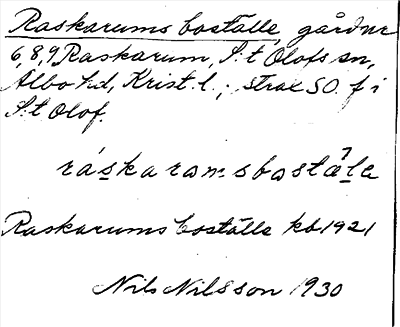 Raskarums boställe, gård nr
6,8,9 Raskarum, S:t Olofs sn,
Albo hd, Krist. l.; strax SO. f i
S:t Olof.
ráskaromsbostǻle
Raskarums boställe kb 1921
Nils Nilsson 1930